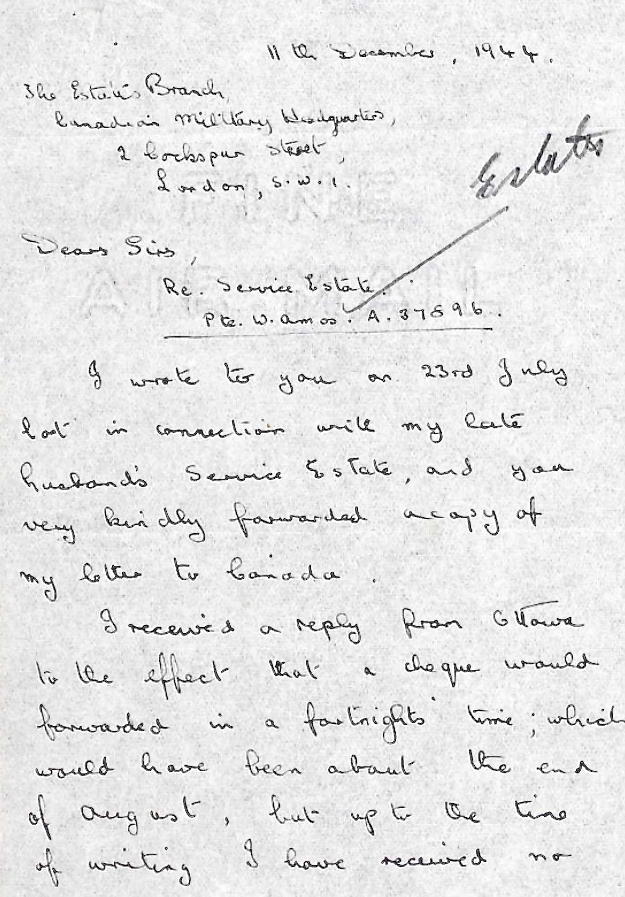 11th December, 1944.
The Estates Branch,
Canadian Military Headquarters,
2 Cockspur Street,
London, S.W.1.
Estates
Dear Sirs,
Re. Service Estate.
Pte. W. Amos. A. 37596.
I wrote to you on 23rd July
last in connection with my late
husband's Service Estate, and you
very kindly forwarded a copy of
my letter to Canada.
I received a reply from Ottawa
to the effect that a cheque would
forwarded in a fortnights' time; which
would have been about the end
of August, but up to the time
of writing I have received no